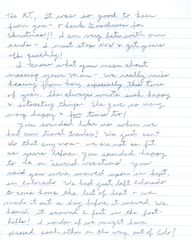 Hi RJ, It was so good to hear
from you - & thank Goodness for
Christmas!! I am very late with our
cards - I must stop NOW & get yours
off quickly!
I know what you mean about
missing your Mom - we really miss
hearing from her, especially this time of
year. She always wrote such happy
& interesting things. She gave us many
many happy & fun times too!
You sounded like us when we
had our travel trailer! We just can't
do that any more - we are not as fit
as years before. You sounded happy
to be on several vacations. you
said you were snowed upon in Sept.
in Colorado. We had just left Colorado
to come home the last of Sept. & we
made it out a day before it snowed. We
heard it snowed 2 feet in the foot-
hills! I wonder if we might have
passed each other on the way out of Colo!